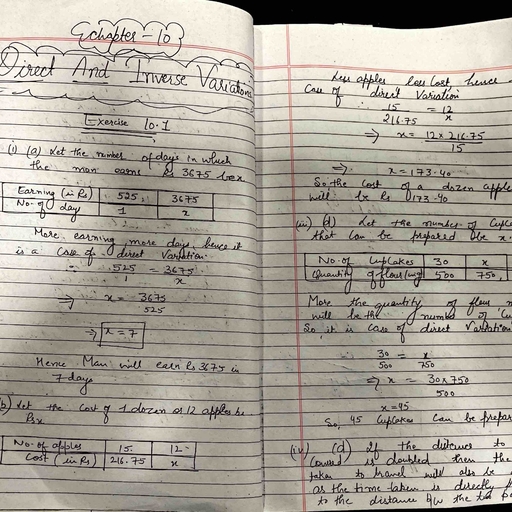 Chapter - 10
Direct And Inverse Variations
Exercise 10.1
(i) (a) Let the number of days in which
the man earns Rs 3675 be x
Earning (in Rs) 525 3675
No. of day 1 x
More earning more days, hence it
is a case of direct variation.
525 = 3675
1 x
⇒ x = 3675
525
⇒ x = 7
Hence Man will earn Rs 3675 in
7 days
(b) Let the cost of 1 dozen or 12 apples be
Rs x
No. of apples 15 12
Cost (in Rs) 216.75 x
Less apples less cost, hence
Case of direct variation
15 = 12
216.75 x
⇒ x = 12 x 216.75
15
⇒ x = 173.40
So, the cost of a dozen apple
will be Rs 173.40
(iii) (d) Let the number of Cupc
that can be prepared be x
No. of Cupcakes 30 x
Quantity of flour (mg) 500 750
More the quantity of flour m
will be the number of Cu
So, it is case of direct variation
∴ 30 = x
500 750
⇒ x = 30 x 750
500
x = 45
So, 45 cupcakes can be prepar
(iv) (d) If the distance to
covered is doubled then the
taken to travel will also be
as the time taken is directly
to the distance b/w the two